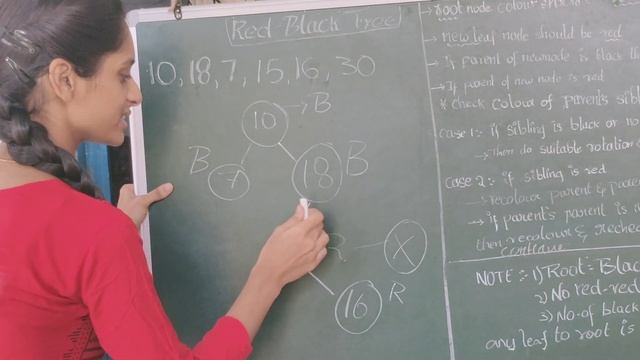 Red-Black Tree
10, 18, 7, 15, 16, 30
10 → B
B 7
18 B
R X
16 R
→ Root node colour
→ New leaf node should be red
→ If parent of newnode is black th
→ If parent of new node is red
* check colour of parent's sibl
Case 1:- if sibling is black or no
→ Then do suitable rotation
Case 2:- if sibling is red
→ recolour parent &
→ if parent's parent is
then recolour & recheck
continue
NOTE :- 1) Root = Blac
2) No red-red
3) No. of black
any leaf to root is